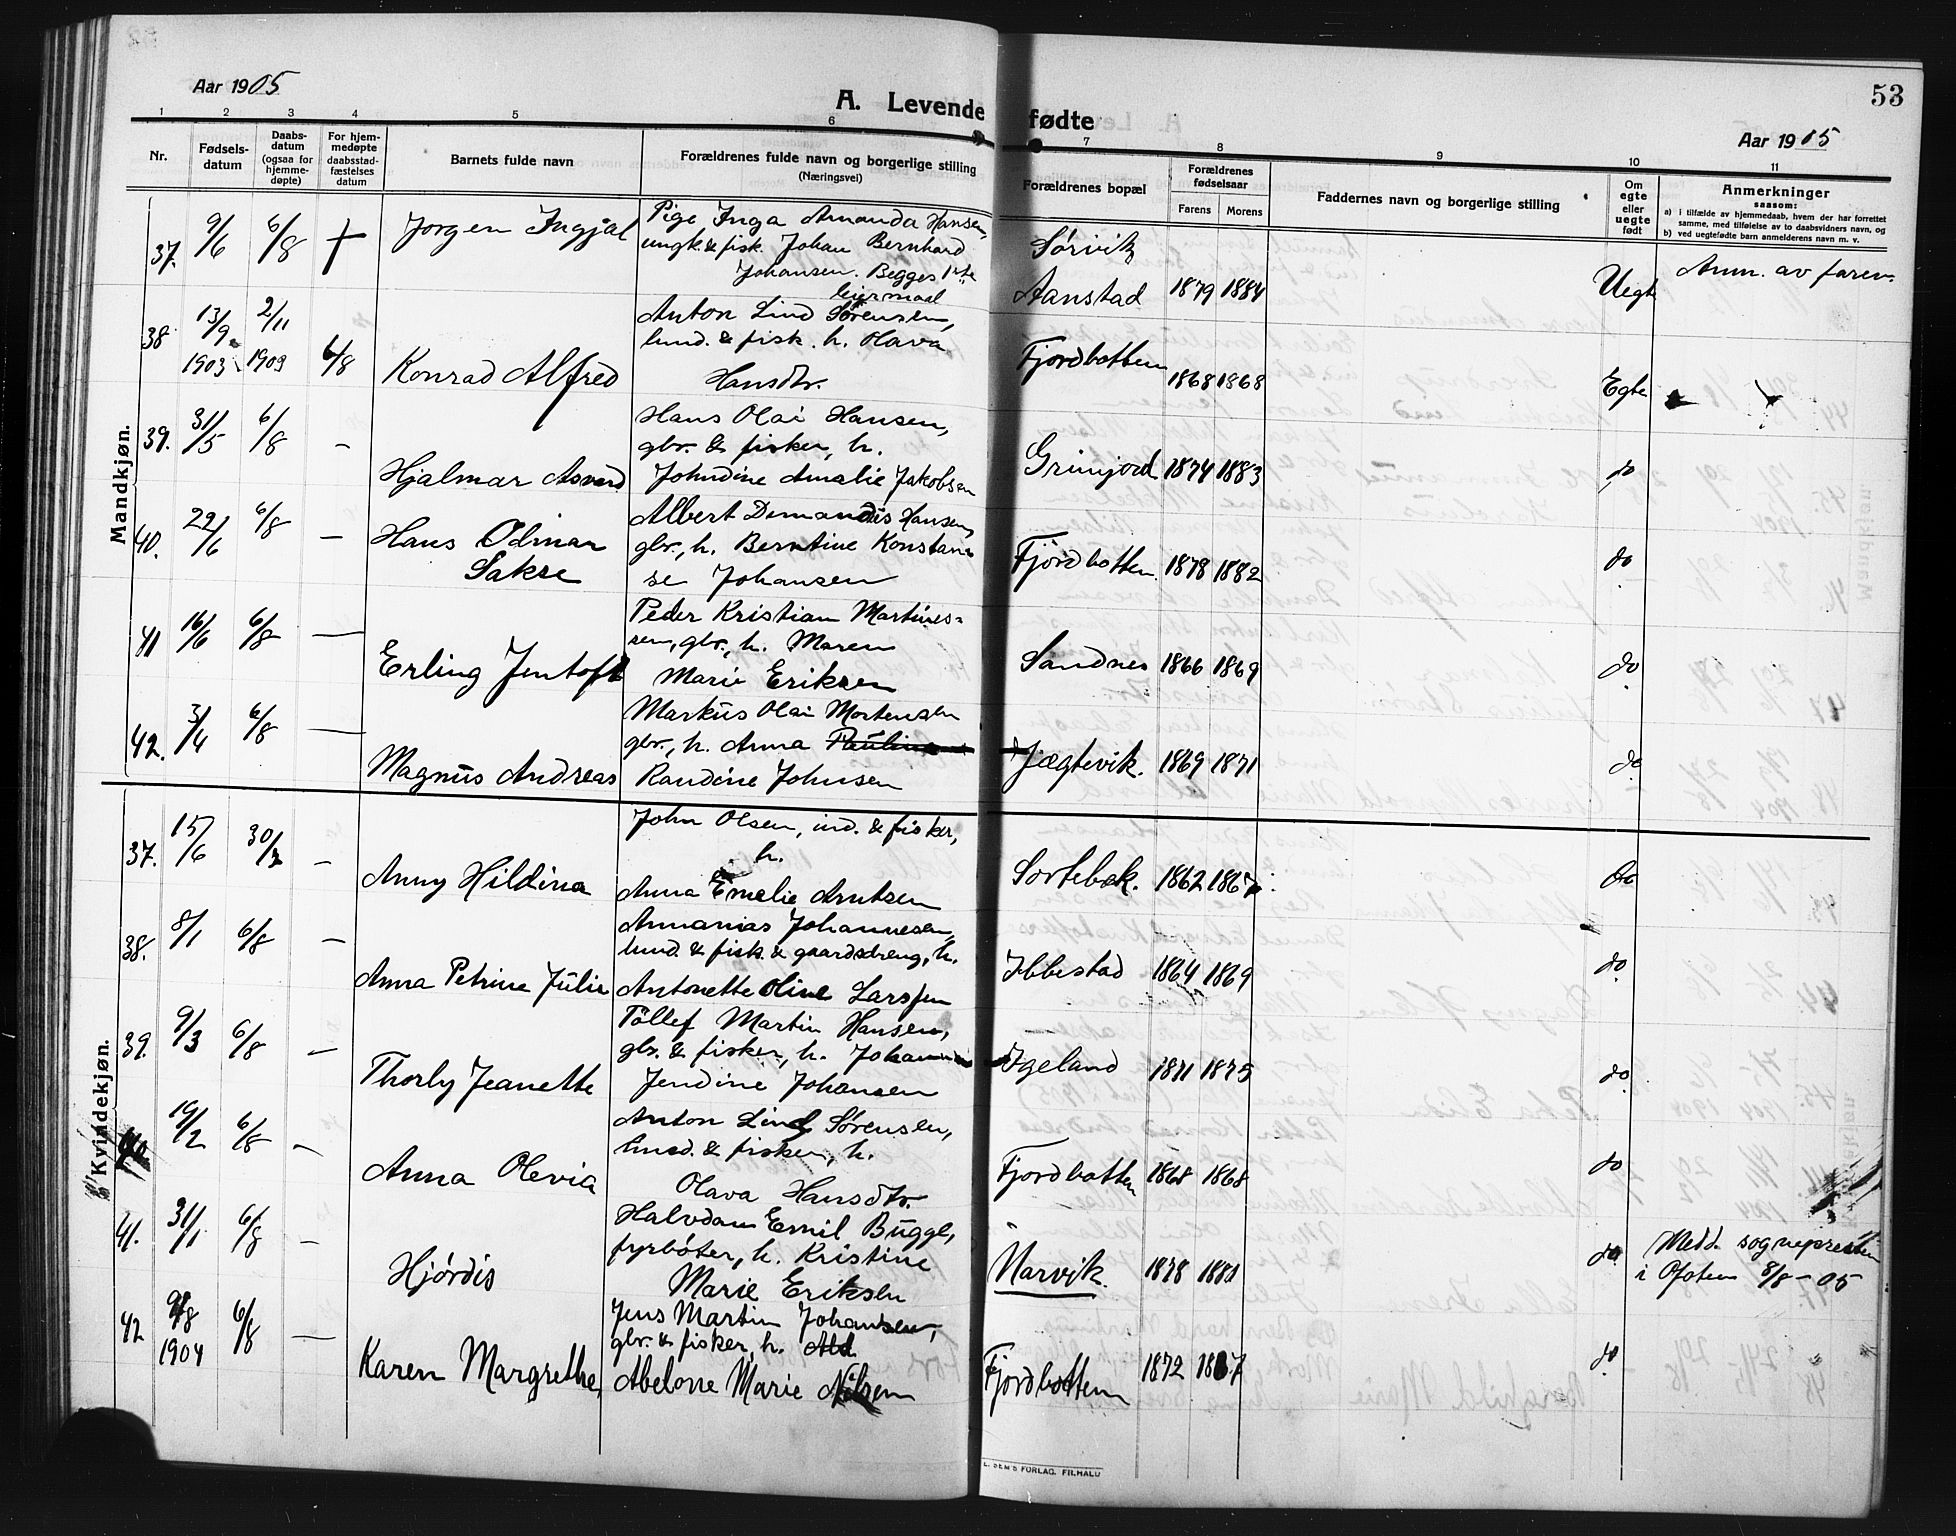 Aar 1905
A. Levende fødte
53
Aar 1905
1 2 3 4 5 6 7 8 9 10 11
Nr.
Fødsels-
datum
Daabs-
datum
(ogsaa for
hjemme-
døpte)
For hjem-
medøpte
daabsstad-
fæstelses
datum
Barnets fulde navn
Forældrenes fulde navn og borgerlige stilling
(Næringsvei)
Forældrenes bopæl
Forældrenes
fødselsaar
Farens Morens
Faddernes navn og borgerlige stilling
Om
egte
eller
uegte
født
Anmerkninger
saasom:
a) i tilfælde av hjemmedaab, hvem der har forrettet
samme, med tilføielse av to daabsvidners navn, og
b) ved uegtefødte barn anmelderens navn m. v.
Mandkjøn.
37. 9/6 6/8 Jørgen Ingjal
Pige Inga Amanda Hansen,
ungk. & fisk. Johan Bernhard
Johansen. Begges 1ste
leiermaal
Sørvik
Aanstad 1879 1884 Uegte Anm. av faren.
38 13/9 1903 2/11 1903 6/8 Konrad Alfred
Anton Lind Sørensen,
lund. & fisk. h. Olava
Hansdtr.
Fjordbotten 1868 1868 Egte
39. 31/5 6/8 – Hjalmar Asvard
Hans Olai Hansen,
gbr. & fisker, h.
Johndine Amalie Jakobsen
Grimjord 1874 1883 do
40. 29/6 6/8 – Hans Odmar
Sakse
Albert Demandis Hansen,
gbr., h. Berntine Konstan
se Johansen
Fjordbotten 1878 1882 do
41 16/6 6/8 – Erling Jentoft
Peder Kristian Martines-
sen, gbr., h. Maren
Marie Eriksen
Sandnes 1866 1869 do
42. 3/4 6/8 – Magnus Andreas
Markus Olai Mortensen
gbr., h. Anna Pauline
Randine Johnsen
Jægtevik. 1869 1871 do
Kvindekjøn.
37. 15/6 30/7 – Anny Hildina
John Olsen, ind. & fisker,
h.
Anna Emelie Arntsen
Sortebek. 1862 1867 do
38. 8/1 6/8 – Anna Petrine Julie
Annanias Johannesen,
lund. & fisk. & gaardsdreng, h.
Antonette Oline Larssen
Ibbestad 1864 1869 do
39. 9/3 6/8 – Thorly Jeanette
Tollef Martin Hansen,
gbr. & fisker, h. Johanna
Jendine Johansen
Igeland 1871 1875 do
40. 19/2 6/8 – Anna Olevia
Anton Lind Sørensen,
lund. & fisker, h.
Olava Hansdtr.
Fjordbotten 1868 1868 do
41. 31/1 6/8 – Hjørdis
Halvdan Emil Bugge,
fyrbøter, h. Kristine
Marie Eriksen
Narvik. 1878 1881 do
Medd. sognepresten
i Ofoten 8/8–05
42 9/8 1904 6/8 – Karen Margrethe
Jens Martin Johansen,
gbr. & fisker, h.
Abelone Marie Nilsen
Fjordbotten 1872 1867 do
SEM'S FORLAG, FILHALD